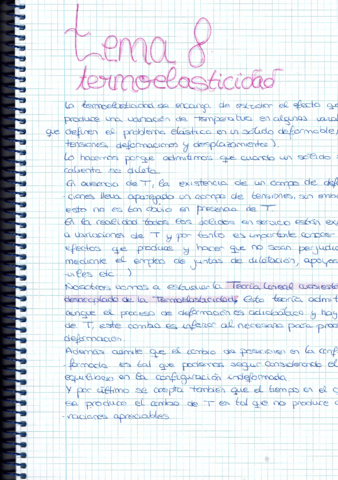 tema 8
termoelasticidad
La termoelasticidad se encarga de estudiar el efecto que
produce una variación de Temperatura en algunas
que definen el problema elástico en un sólido deformable
tensiones, deformaciones y desplazamientos).
Lo hacemos porque admitimos que cuando un sólido
calienta se dilata.
En ausencia de T, la existencia de un campo de
ciones lleva aparejado un campo de tensiones, sin
esto no es tan obvio en presencia de T.
En la realidad todos los sólidos en servicio están
a variaciones de T y por tanto es importante
efectos que produce y hacer que no sean
mediante el empleo de juntas de dilatación,
etc.)
Nosotros vamos a estudiar la Teoría Lineal
desacoplada de la Termoelasticidad. Esta teoría
aunque el proceso de deformación es adiabático y
de T, este cambio es inferior al necesario para
deformación.
Además admite que el cambio de posiciones en la
formada es tal que podemos seguir considerando el
equilibrio en la configuración indeformada.
Y por último se acepta también que el tiempo en el
se produce el cambio de T es tal que no produce
raciones apreciables.